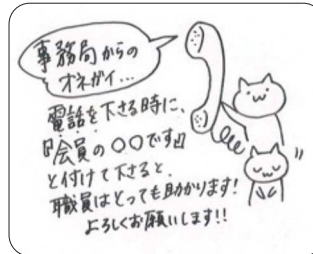 事務局からの
オネガイ…
電話を下さる時に、
『会員の〇〇です』
と付けて下さると、
職員はとっても助かります!
よろしくお願いします!!